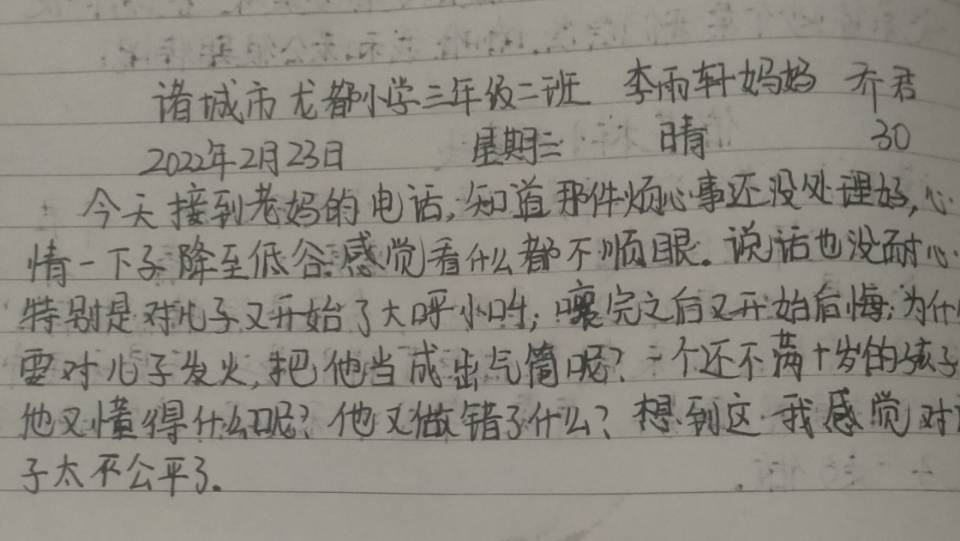 诸城市龙都小学三年级二班 李雨轩妈妈 乔君
2022年2月23日 星期三 晴 30
今天接到老妈的电话,知道那件烦心事还没处理好,心
情一下子降至低谷.感觉看什么都不顺眼。说话也没耐心.
特别是对儿子又开始了大呼小叫;嚷完之后又开始后悔;为什
要对儿子发火,把他当成出气筒呢?一个还不满十岁的孩子
他又懂得什么呢?他又做错了什么?想到这 我感觉对
子太不公平了。